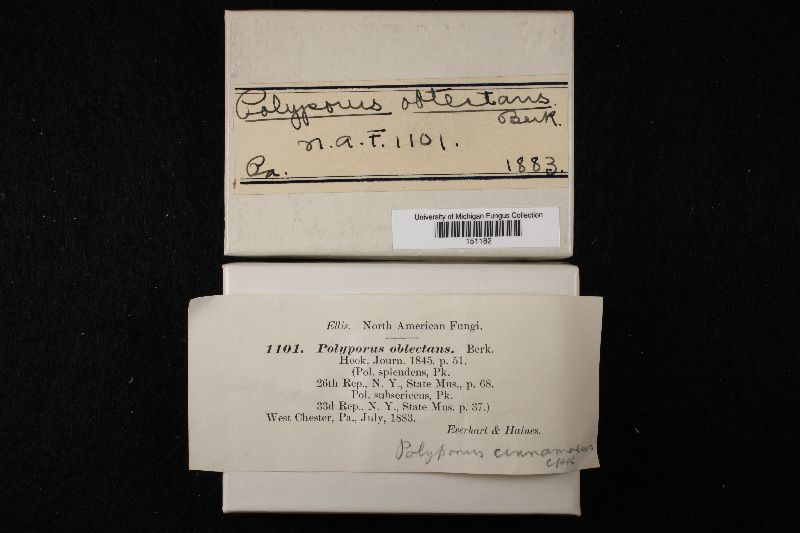 Polyporus obtectans
Berk.
N. A. F. 1101.
Pa. 1883.
University of Michigan Fungus Collection
151182
Ellis. North American Fungi.
1101. Polyporus oblectans. Berk.
Hook. Journ. 1845. p. 51.
(Pol. splendens, Pk.
26th Rep., N. Y., State Mus., p. 68.
Pol. subsericeus, Pk.
33d Rep., N. Y., State Mus. p. 37.)
West Chester, Pa., July, 1883.
Everhart & Haines.
Polyporus cinnamoeus
CHK